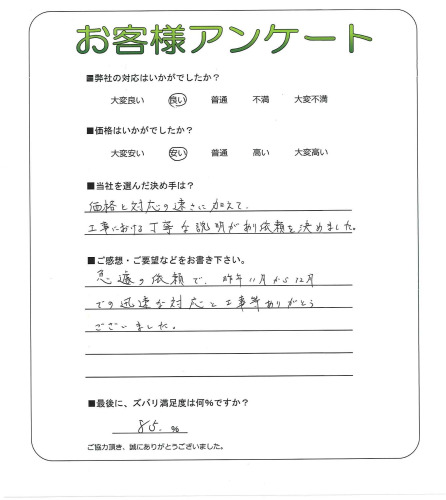 お客様アンケート
■弊社の対応はいかがでしたか？
大変良い 良い 普通 不満 大変不満
■価格はいかがでしたか？
大変安い 安い 普通 高い 大変高い
■当社を選んだ決め手は？
価格と対応の速さに加えて、
工事における丁寧な説明があり依頼を決めました。
■ご感想・ご要望などをお書き下さい。
急遽の依頼で、昨年11月から12月
での迅速な対応と工事等ありがとう
ございました。
■最後に、ズバリ満足度は何%ですか？
85. %
ご協力頂き、誠にありがとうございました。